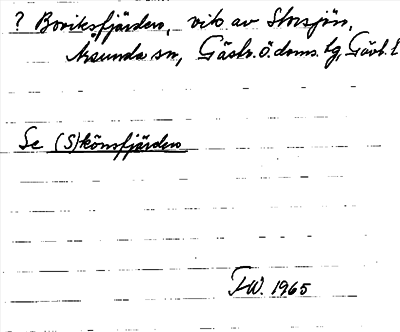 ? Boviksfjärden, vik av Storsjön,
Årsunda sn, Gästr. ö. doms. tg, Gävl. l
Se (S)könsfjärden
F.W. 1965